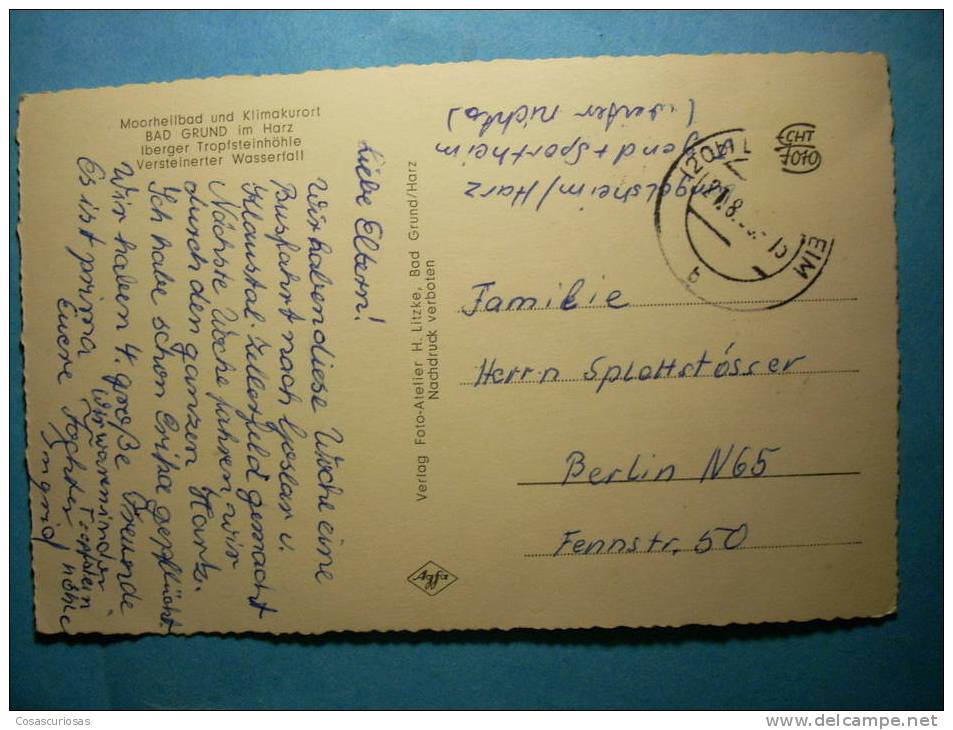 Moorheilbad und Klimakurort
BAD GRUND im Harz
Iberger Tropfsteinhöhle
Versteinerter Wasserfall
Liebe Eltern!
Wir haben diese Woche eine
Busfahrt nach Goslar u.
Klaustal-Zellerfeld gemacht
Nächste Woche fahren wir
durch den ganzen Harz.
Ich habe schon gepflückt.
Wir haben 4 große Freunde
Es ist prima Wir waren in der
Tropfstein
höhle
Euere Tochter
Ingrid
Verlag Foto-Atelier H. Litzke, Bad Grund/Harz
Nachdruck verboten
Agfa
gelsheim/Harz
gend + Sportheim
(weiter nichts)
ECHT
FOTO
(20b)
EIM
a
Familie
Herrn Splettstösser
Berlin N65
Fennstr. 50
Cosascuriosas
www.delcampe.net